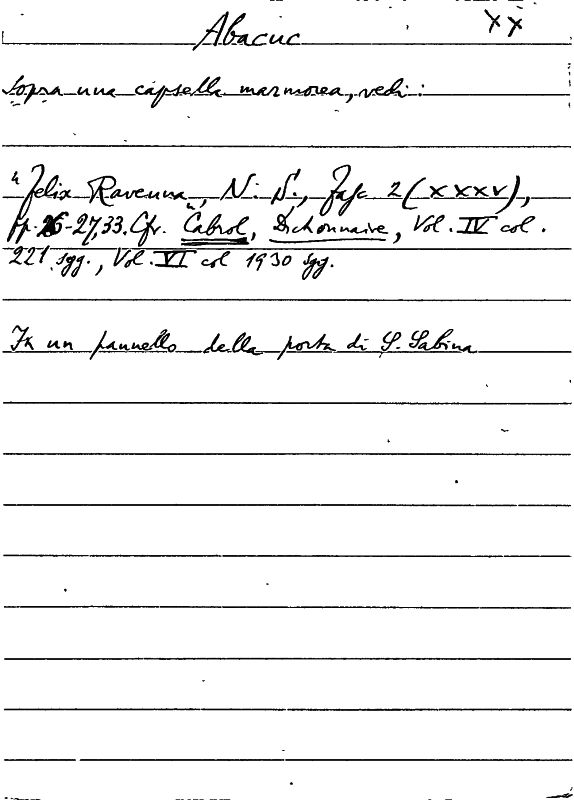 Abacuc
XX
Sopra una capsella marmorea, vedi:
"Felix Ravenna", N. S., Fasc 2 (XXXV),
pp. 26-27, 33. Cfr. Cabrol, Dictionnaire, Vol. IV col.
221 sgg., Vol. VI col 1930 sgg.
In un pannello della porta di S. Sabina